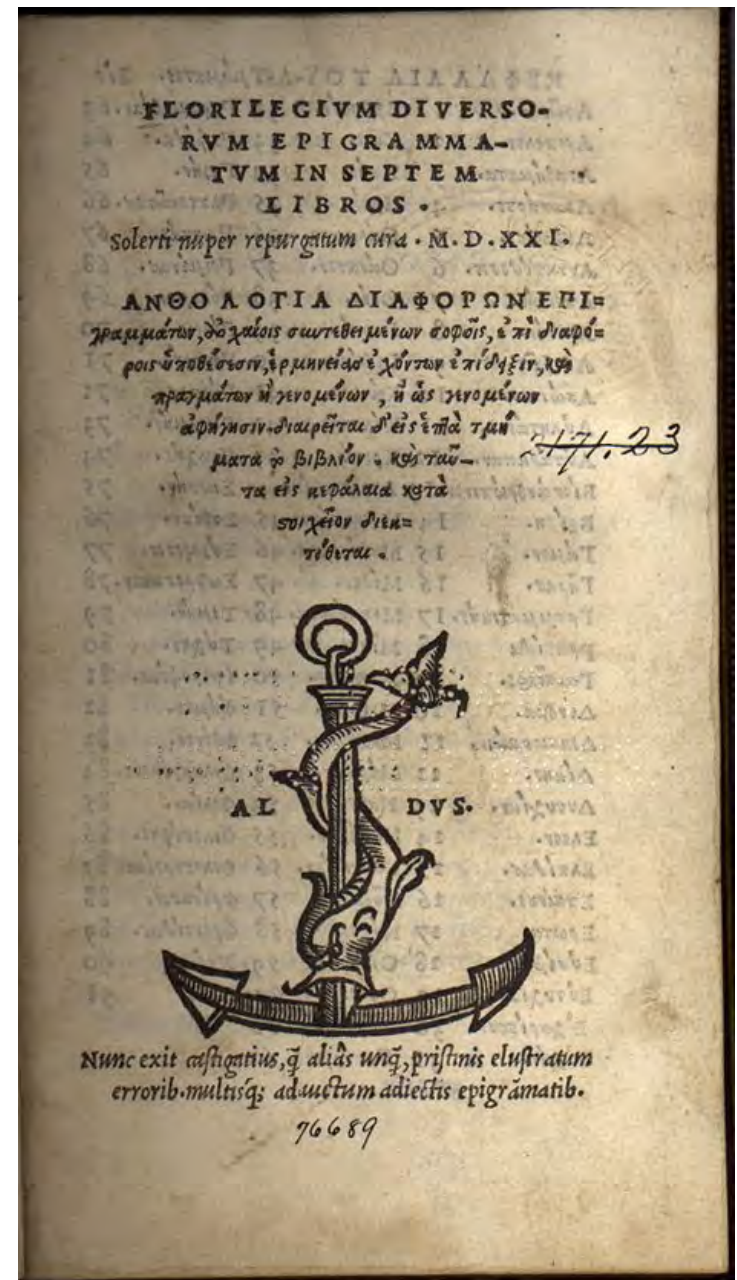 FLORILEGIVM DIVERSO-
RVM EPIGRAMMA-
TVM IN SEPTEM
LIBROS.
Solerti nuper repurgatum cura. M.D.XXI.
ΑΝΘΟΛΟΓΙΑ ΔΙΑΦΟΡΩΝ ΕΠΙ=
γραμμάτων, ἀρχαίοις συντεθειμένων σοφοῖς, ἐπὶ διαφό=
ροις ὑποθέσεσιν, ἑρμηνείας ἐχόντων ἐπίδειξιν, καὶ
πραγμάτων ἢ γενομένων, ἢ ὡς γενομένων
ἀφήγησιν. διαιρεῖται δ' εἰς ἑπτὰ τμή
ματα τὸ βιβλίον. καὶ ταῦ-
τα εἰς κεφάλαια κατὰ
στοιχεῖον διεκ=
τίθεται.
171.23
AL DVS.
Nunc exit castigatius, q̃ aliâs unq̃, pristinis elustratum
errorib. multisq; ad uictum adiectis epigrãmatib.
76689